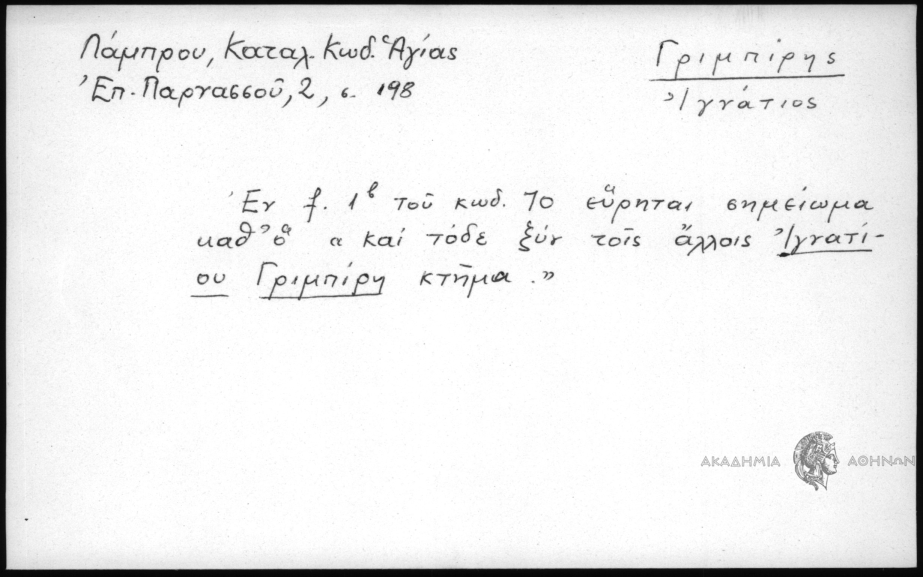 Λάμπρου, Καταλ. Κωδ. Ἁγίας
Ἐπ. Παρνασσοῦ, 2, σ. 198
Γριμπίρης
Ἰγνάτιος
Ἐν f. 1β τοῦ κωδ. 70 εὕρηται σημείωμα
καθ' ὅ « καί τόδε ξύν τοῖς ἄλλοις Ἰγνατί-
ου Γριμπίρη κτῆμα . »
ΑΚΑΔΗΜΙΑ ΑΘΗΝΩΝ